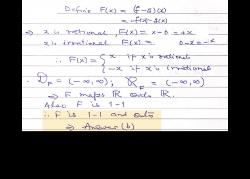 Define F(x) = (f-g)(x)
= f(x)-g(x)
⇒ x is rational, F(x) = x-0 = x
x is irrational F(x) = 0-x = -x
∴ F(x) = { x if x is rational
-x if x is irrational
∴ D_F = (-∞, ∞); R_F = (-∞, ∞)
⇒ F maps R onto R.
Also F is 1-1
∴ F is 1-1 and onto
⇒ Answer (b)